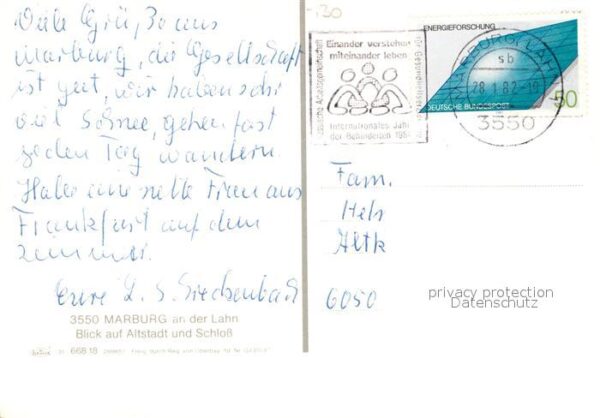 Viele Grüße aus
Marburg, die Gesellschaft
ist gut, wir haben sehr
viel Schnee, gehen fast
jeden Tag wandern.
Habe eine nette Frau aus
Frankfurt auf dem
Zimmer.
Eure
3550 MARBURG an der Lahn
Blick auf Altstadt und Schloß
668 18
130
Einander verstehen
miteinander leben
Internationales Jahr
der Behinderten 1981
MARBURG, LAHN
sb
28.1.82
3550
ENERGIEFORSCHUNG
DEUTSCHE BUNDESPOST
50
Fam.
6050
privacy protection
Datenschutz